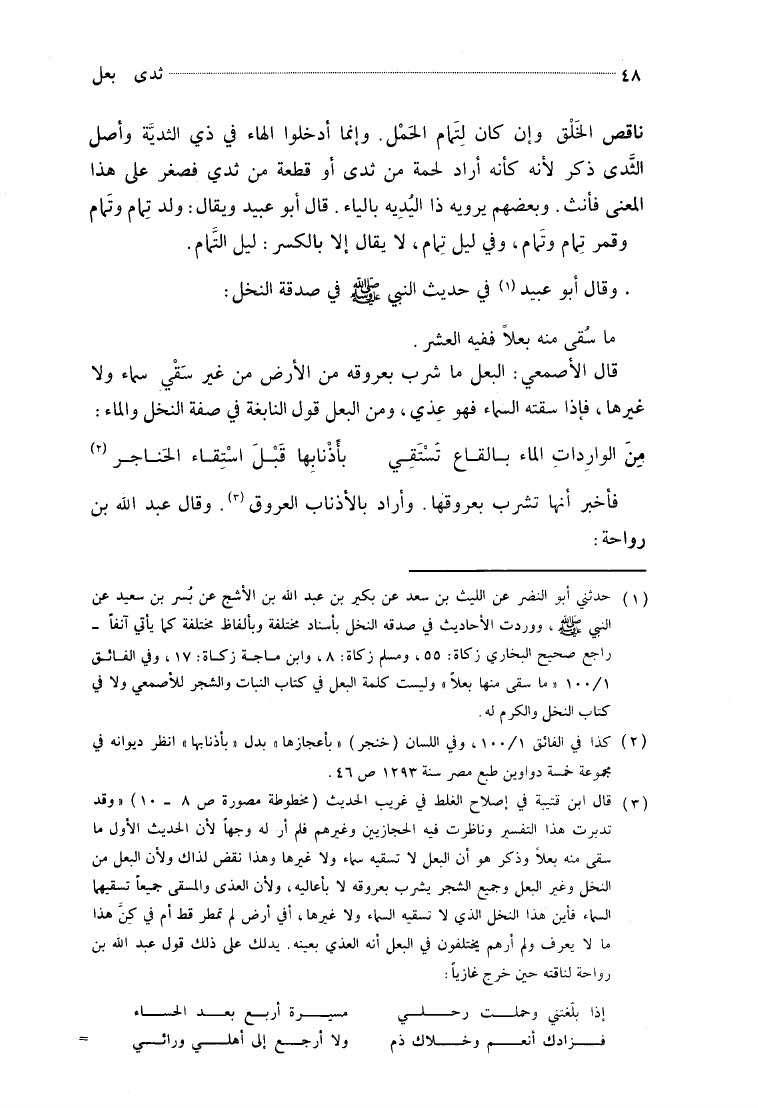 ٤٨ ثدى بعل
ناقص الخَلْق وإن كان لِتَمام الحَمْل. وإنما أدخلوا الهاء في ذي الثديَّة وأصل
الثَّدى ذكر لأنه كأنه أراد لحمة من ثدى أو قطعة من ثدي فصغر على هذا
المعنى فأنث. وبعضهم يرويه ذا اليُدِيه بالياء. قال أبو عبيد ويقال: ولد تِمام وتَمام
وقمر تِمام وتَمام، وفي ليل تِمام، لا يقال إلا بالكسر: ليل التَّمام.
. وقال أبو عبيد (١) في حديث النبي ﷺ في صدقة النخل:
ما سُقى منه بعلاً ففيه العشر.
قال الأصمعي: البعل ما شرب بعروقه من الأرض من غير سَقْي سماء ولا
غيرها، فإذا سقته السماء فهو عِذي، ومن البعل قول النابغة في صفة النخل والماء:
مِنَ الوارِداتِ الماء بـالقـاع تَسْتَقِـي بأَذْنابِها قَبْـلَ اسْتِقـاء الحَناجـر (٢)
فأخبر أنها تشرب بعروقها. وأراد بالأذناب العروق (٣). وقال عبد الله بن
رواحة:
(١) حدثني أبو النضر عن الليث بن سعد عن بكير بن عبد الله بن الأشج عن بُسر بن سعيد عن
النبي ﷺ، ووردت الأحاديث في صدقه النخل بأسناد مختلفة وبألفاظ مختلفة كما يأتي آنفاً -
راجع صحيح البخاري زكاة: ٥٥، ومسلم زكاة: ٨، وابن مـاجـة زكـاة: ١٧، وفي الفـائـق
١٠٠/١ «ما سقى منها بعلاً» وليست كلمة البعل في كتاب النبات والشجر للأصمعي ولا في
كتاب النخل والكرم له.
(٢) كذا في الفائق ١٠٠/١، وفي اللسان (خنجر) «بأعجازها» بدل «بأذنابها» انظر ديوانه في
مجموعة خمسة دواوين طبع مصر سنة ١٢٩٣ ص ٤٦.
(٣) قال ابن قتيبة في إصلاح الغلط في غريب الحديث (مخطوطة مصورة ص ٨ - ١٠) «وقد
تدبرت هذا التفسير وناظرت فيه الحجازيين وغيرهم فلم أر له وجهاً لأن الحديث الأول ما
سقى منه بعلاً وذكر هو أن البعل لا تسقيه سماء ولا غيرها وهذا نقض لذاك ولأن البعل من
النخل وغير البعل وجميع الشجر يشرب بعروقه لا بأعاليه، ولأن العذى والمسقى جميعاً تسقيهما
السماء فأين هذا النخل الذي لا تسقيه السماء ولا غيرها، أفي أرض لم تمطر قط أم في كنَّ هذا
ما لا يعرف ولم أرهم يختلفون في البعل أنه العذي بعينه. يدلك على ذلك قول عبد الله بن
رواحة لناقته حين خرج غازياً:
إذا بلّغتني وحملـت رحـلـي مسيـرة أربـع بعـد الحسـاء
فـزادك أنعـم وخـلاك ذم ولا أرجـع إلى أهلـي ورائـي =